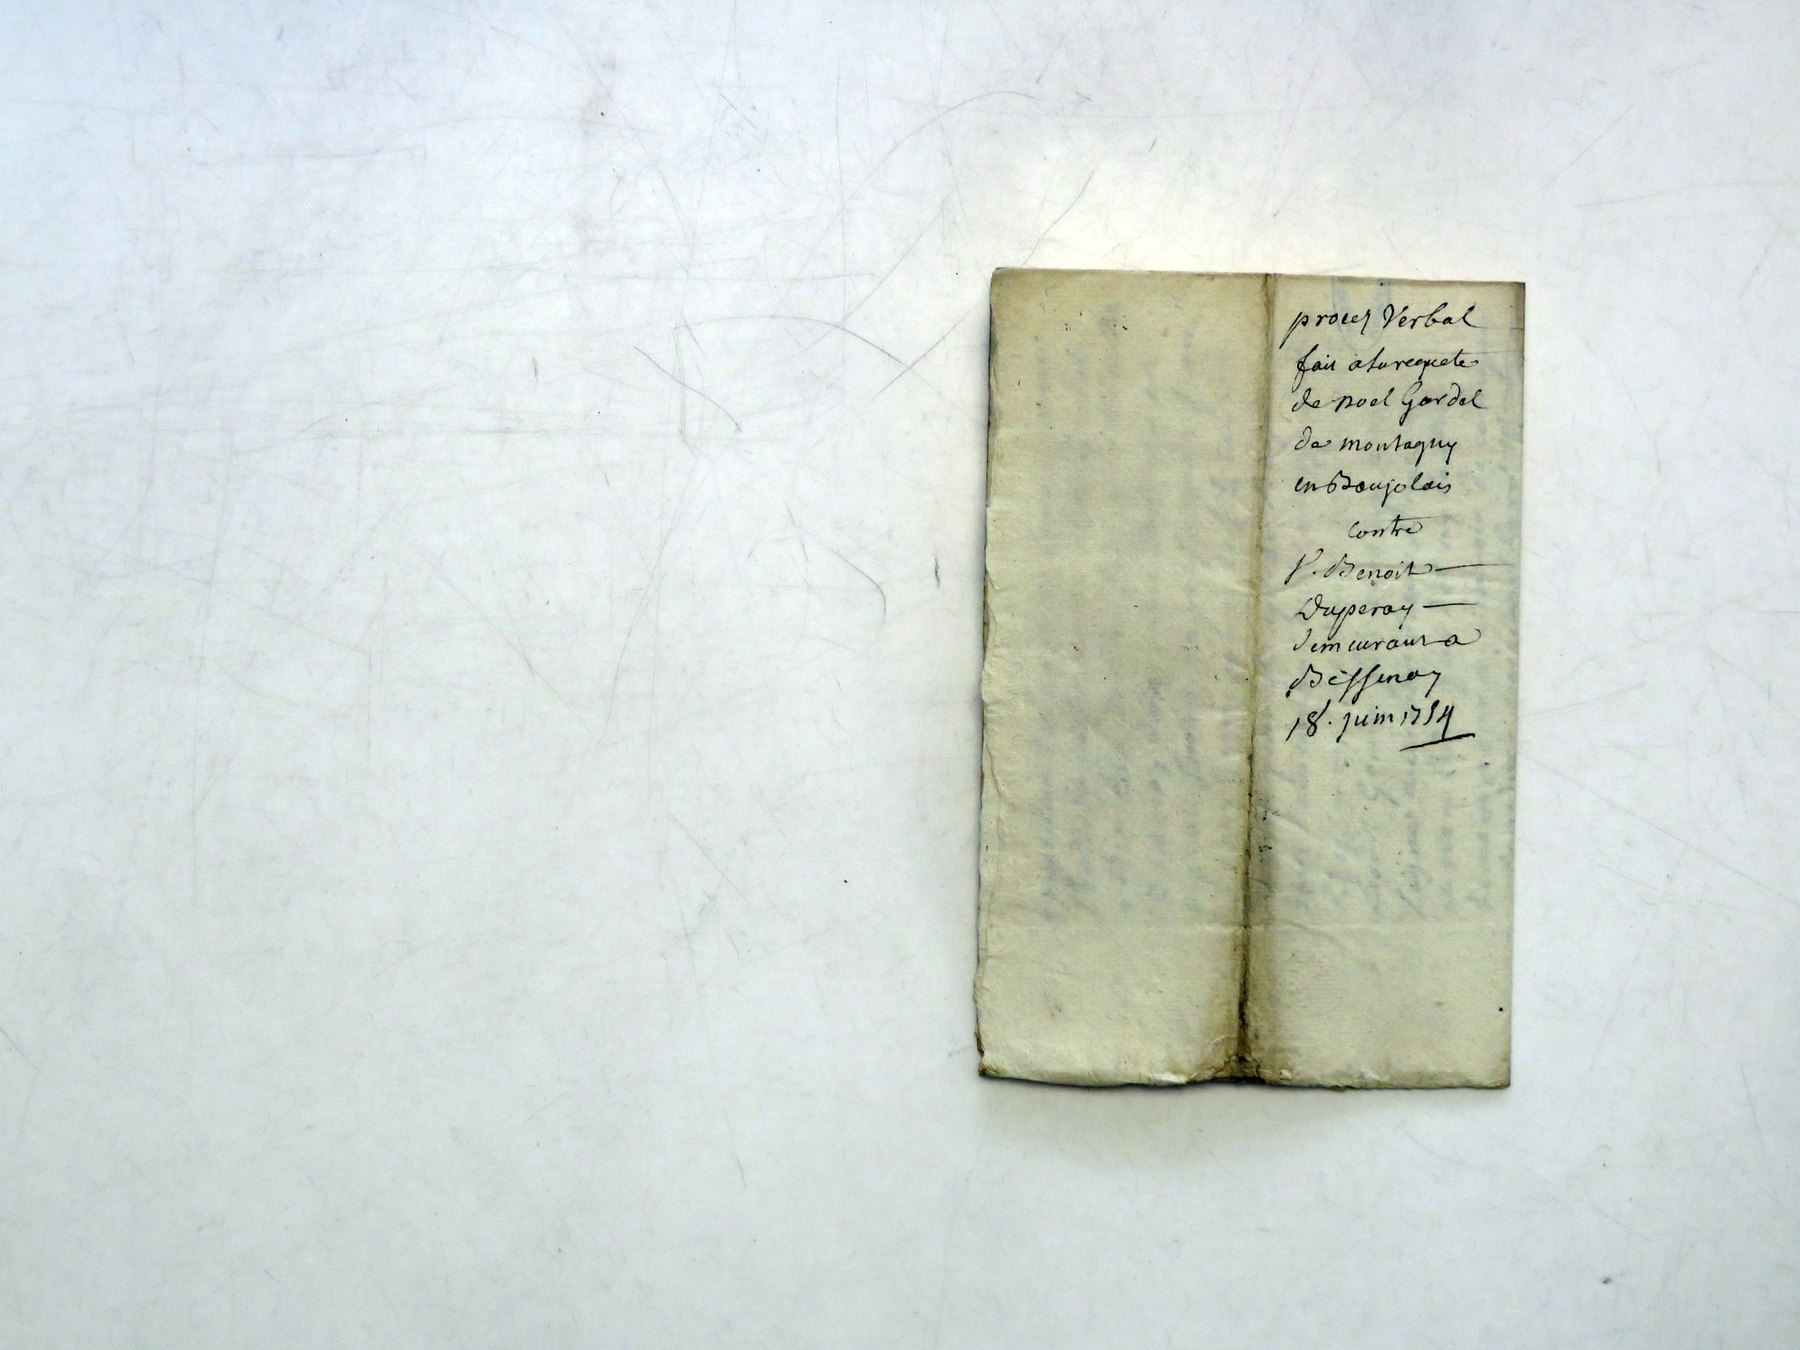 procez Verbal
fait a la requete
de noel Gardel
de montagny
en Baujolais
contre
Sr. Benoit
Duperay
demeurant a
Bessenay
18. juin 1754